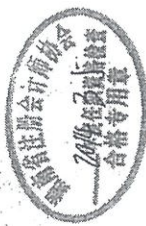 湖南省注册会计师协会
2014年任职资格检查
合格专用章